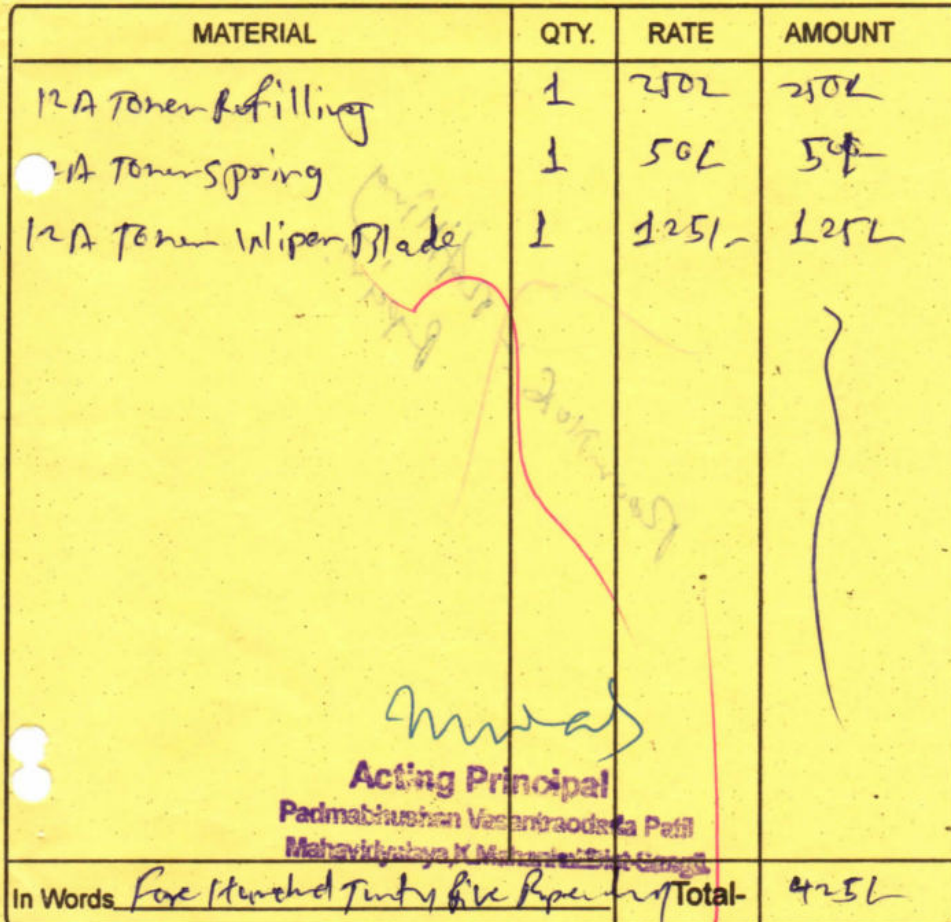 MATERIAL QTY. RATE AMOUNT
12A Toner Refilling 1 250/- 250/-
12A Toner Spring 1 50/- 50/-
12A Toner Wiper Blade 1 125/- 125/-
Acting Principal
Padmabhushan Vasantraodada Patil
Mahavidyalaya, K. Mahankal Dist-Sangli.
In Words Four Hundred Twenty five Rupees Total- 425/-